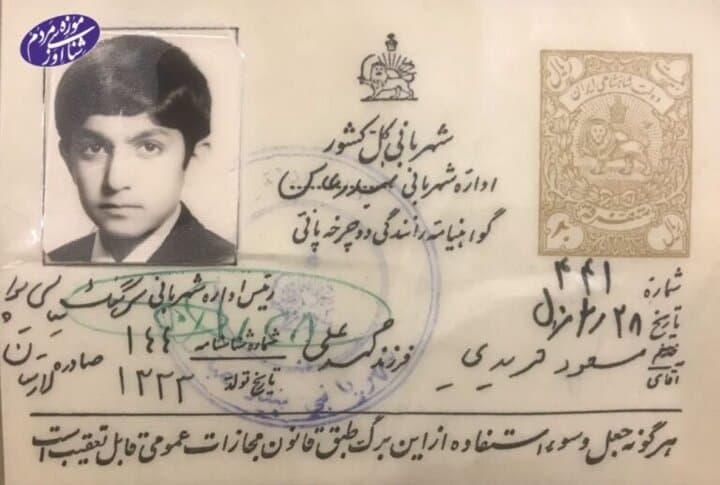 موزه مردم شناسی اوز
شهربانی کل کشور
اداره شهربانی بندرعباس
گواهینامه رانندگی دوچرخه پائی
دولت شاهنشاهی ایران
شماره ۴۴۱
تاریخ ۲۸
رئیس اداره شهربانی سرهنگ
آقای مسعود فریدی فرزند محمد علی شماره شناسنامه ۱۴۴ صادره لارستان
تاریخ تولد ۱۳۳۳
هرگونه جعل و سوء استفاده از این برگ طبق قانون مجازات عمومی قابل تعقیب است